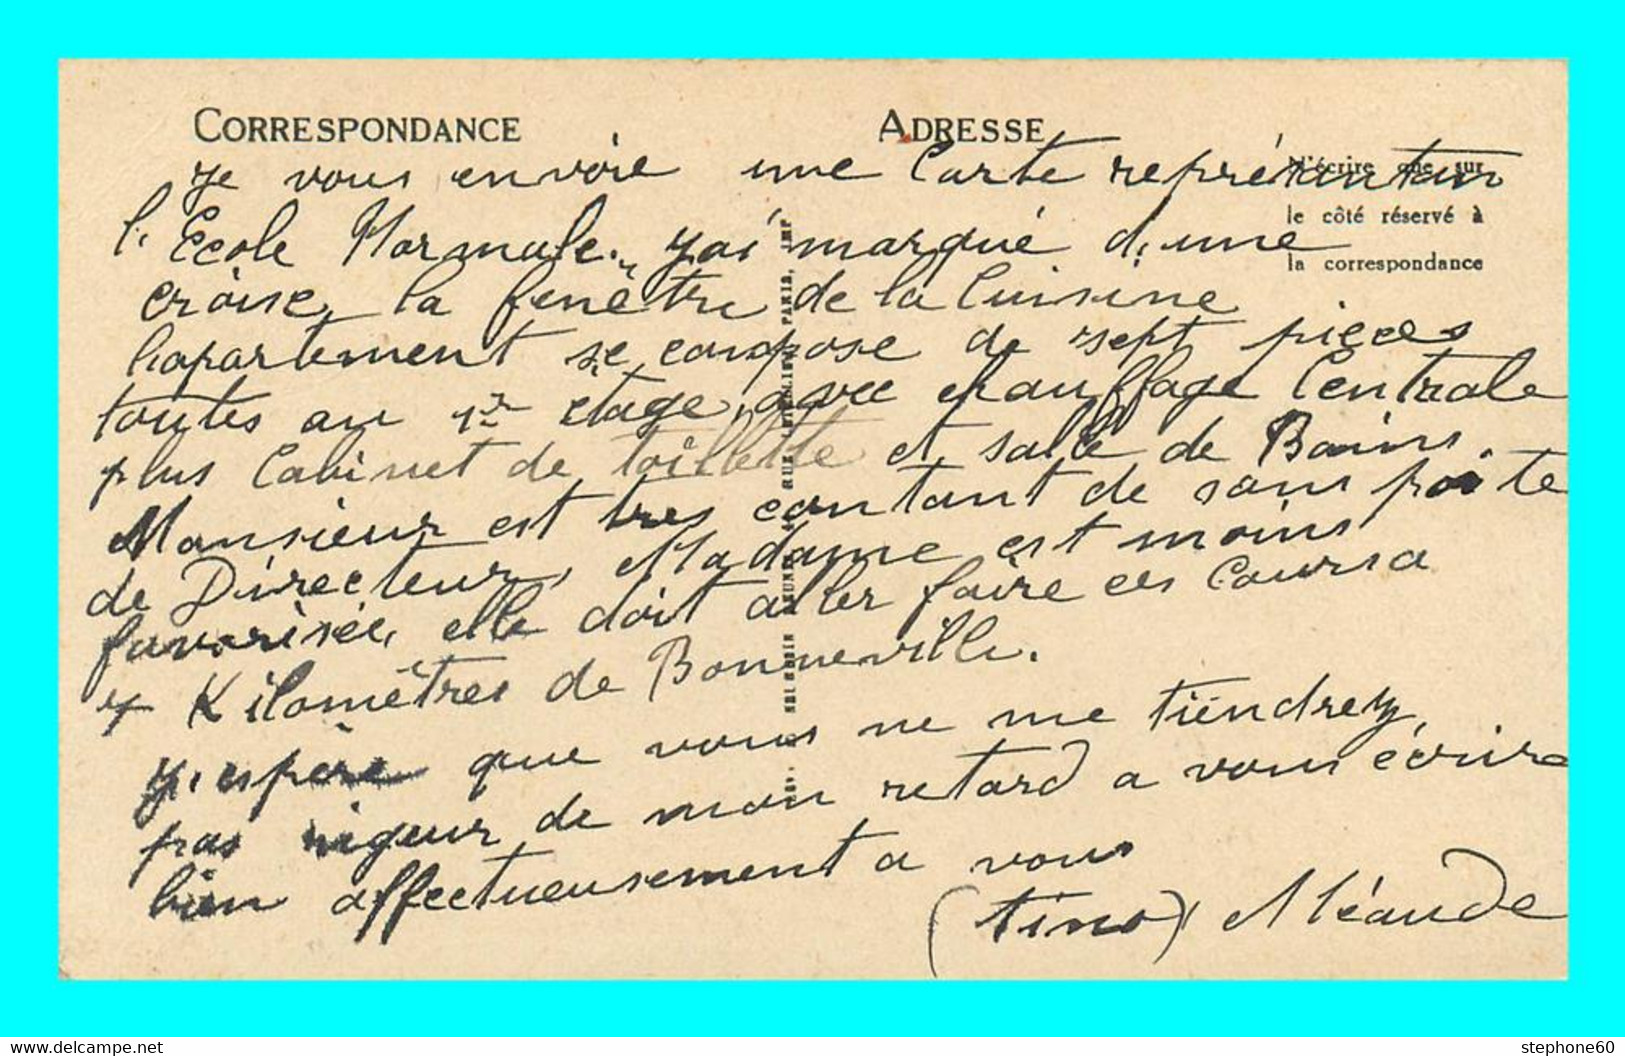 CORRESPONDANCE
ADRESSE
N'écrire que sur
le côté réservé à
la correspondance
Je vous envoie une Carte représantan
l. Ecole Normale. j'ai marqué d. une
croise, la fenêtre de la Cuisine
l'apartement se compose de sept pieces
toutes au 1er etage, avec chauffage Centrale
plus Cabinet de toillette et salle de Bains.
Monsieur est tres contant de sons poste
de Directeur, Madame est moins
favorisée, elle doit aller faire ces Coursa
Kilomêtres de Bonneville.
j. espère que vous ne me tiendrez
pas rigeur de mon retard a vous écrire
bien affectueusement a vous
(tino)
PARIS, IMP
stephone60